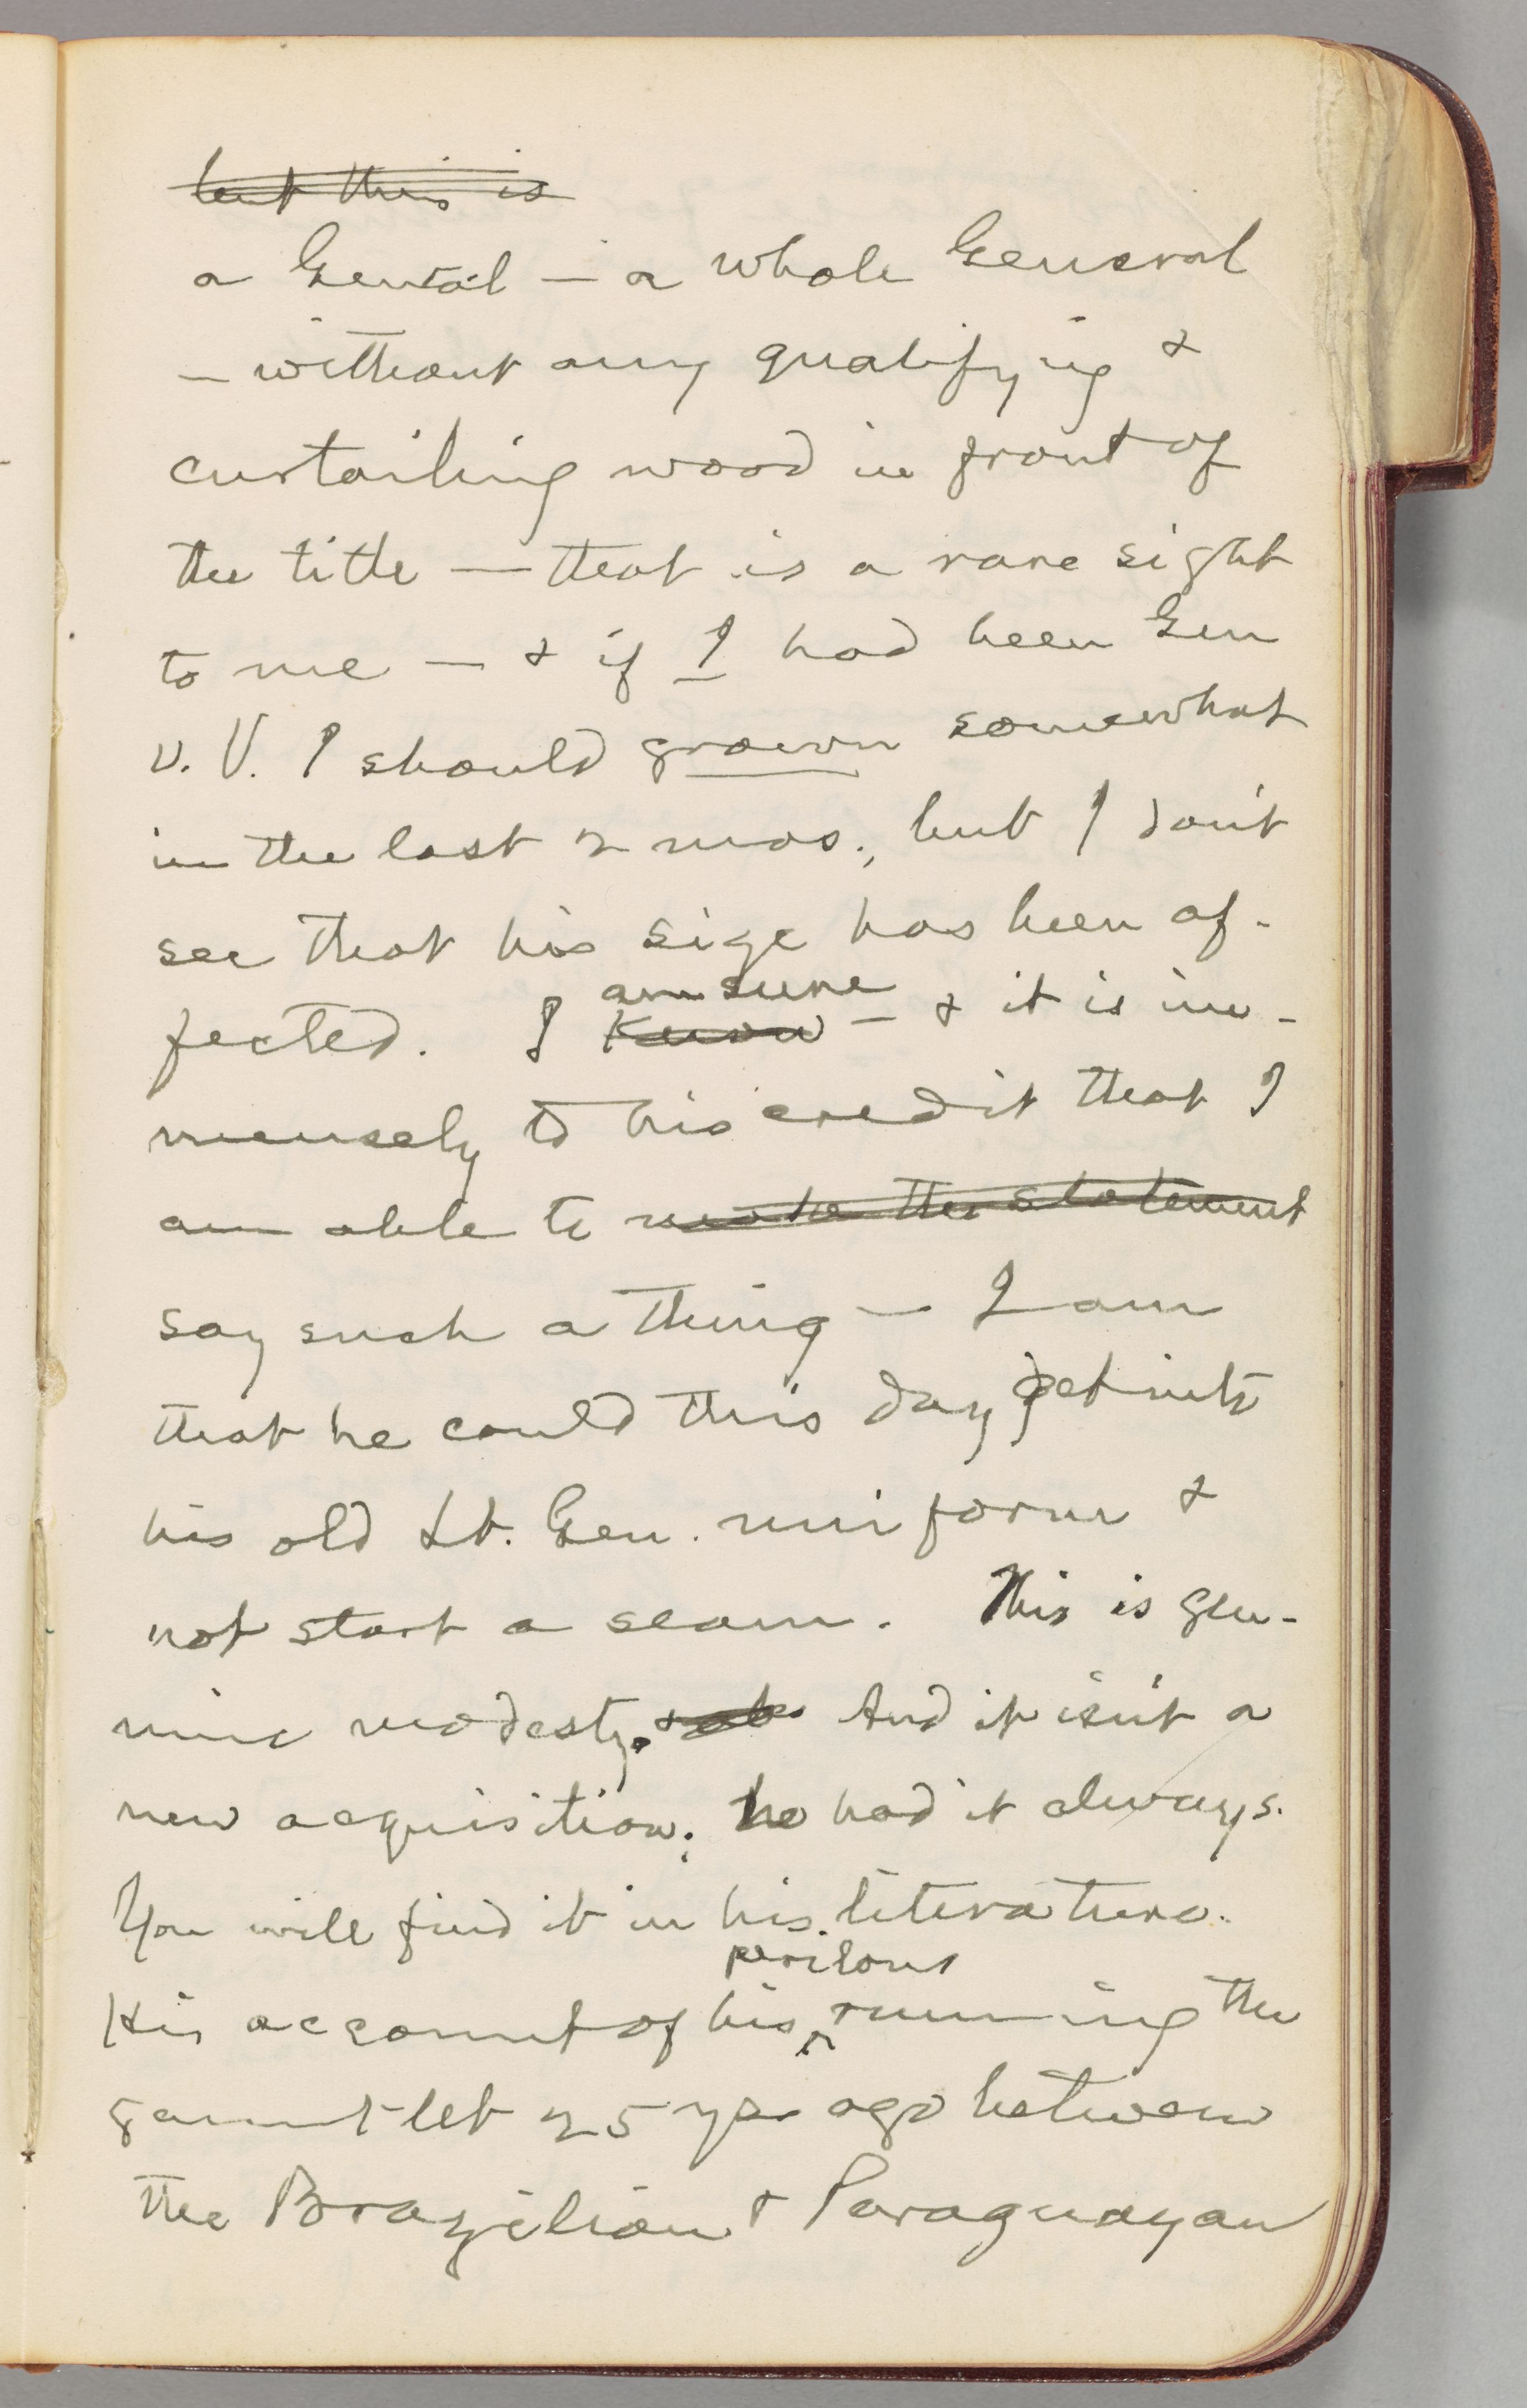 but this is
a General — a whole General
— without any qualifying &
curtailing word in front of
the title — that is a rare sight
to me — & if I had been Gen
V. V. I should grown somewhat
in the last 2 mos., but I don't
see that his size has been af-
fected. I am sure
know — & it is im-
mensely to his credit that I
am able to make the statement
say such a thing — I am
that he could this day get into
his old Lt. Gen. uniform &
not start a seam. This is gen-
uine modesty. & And it isn't a
new acquisition; he had it always.
You will find it in his literature.
His account of his perilous running the
gauntlet 25 yrs ago between
the Brazilian & Paraguayan